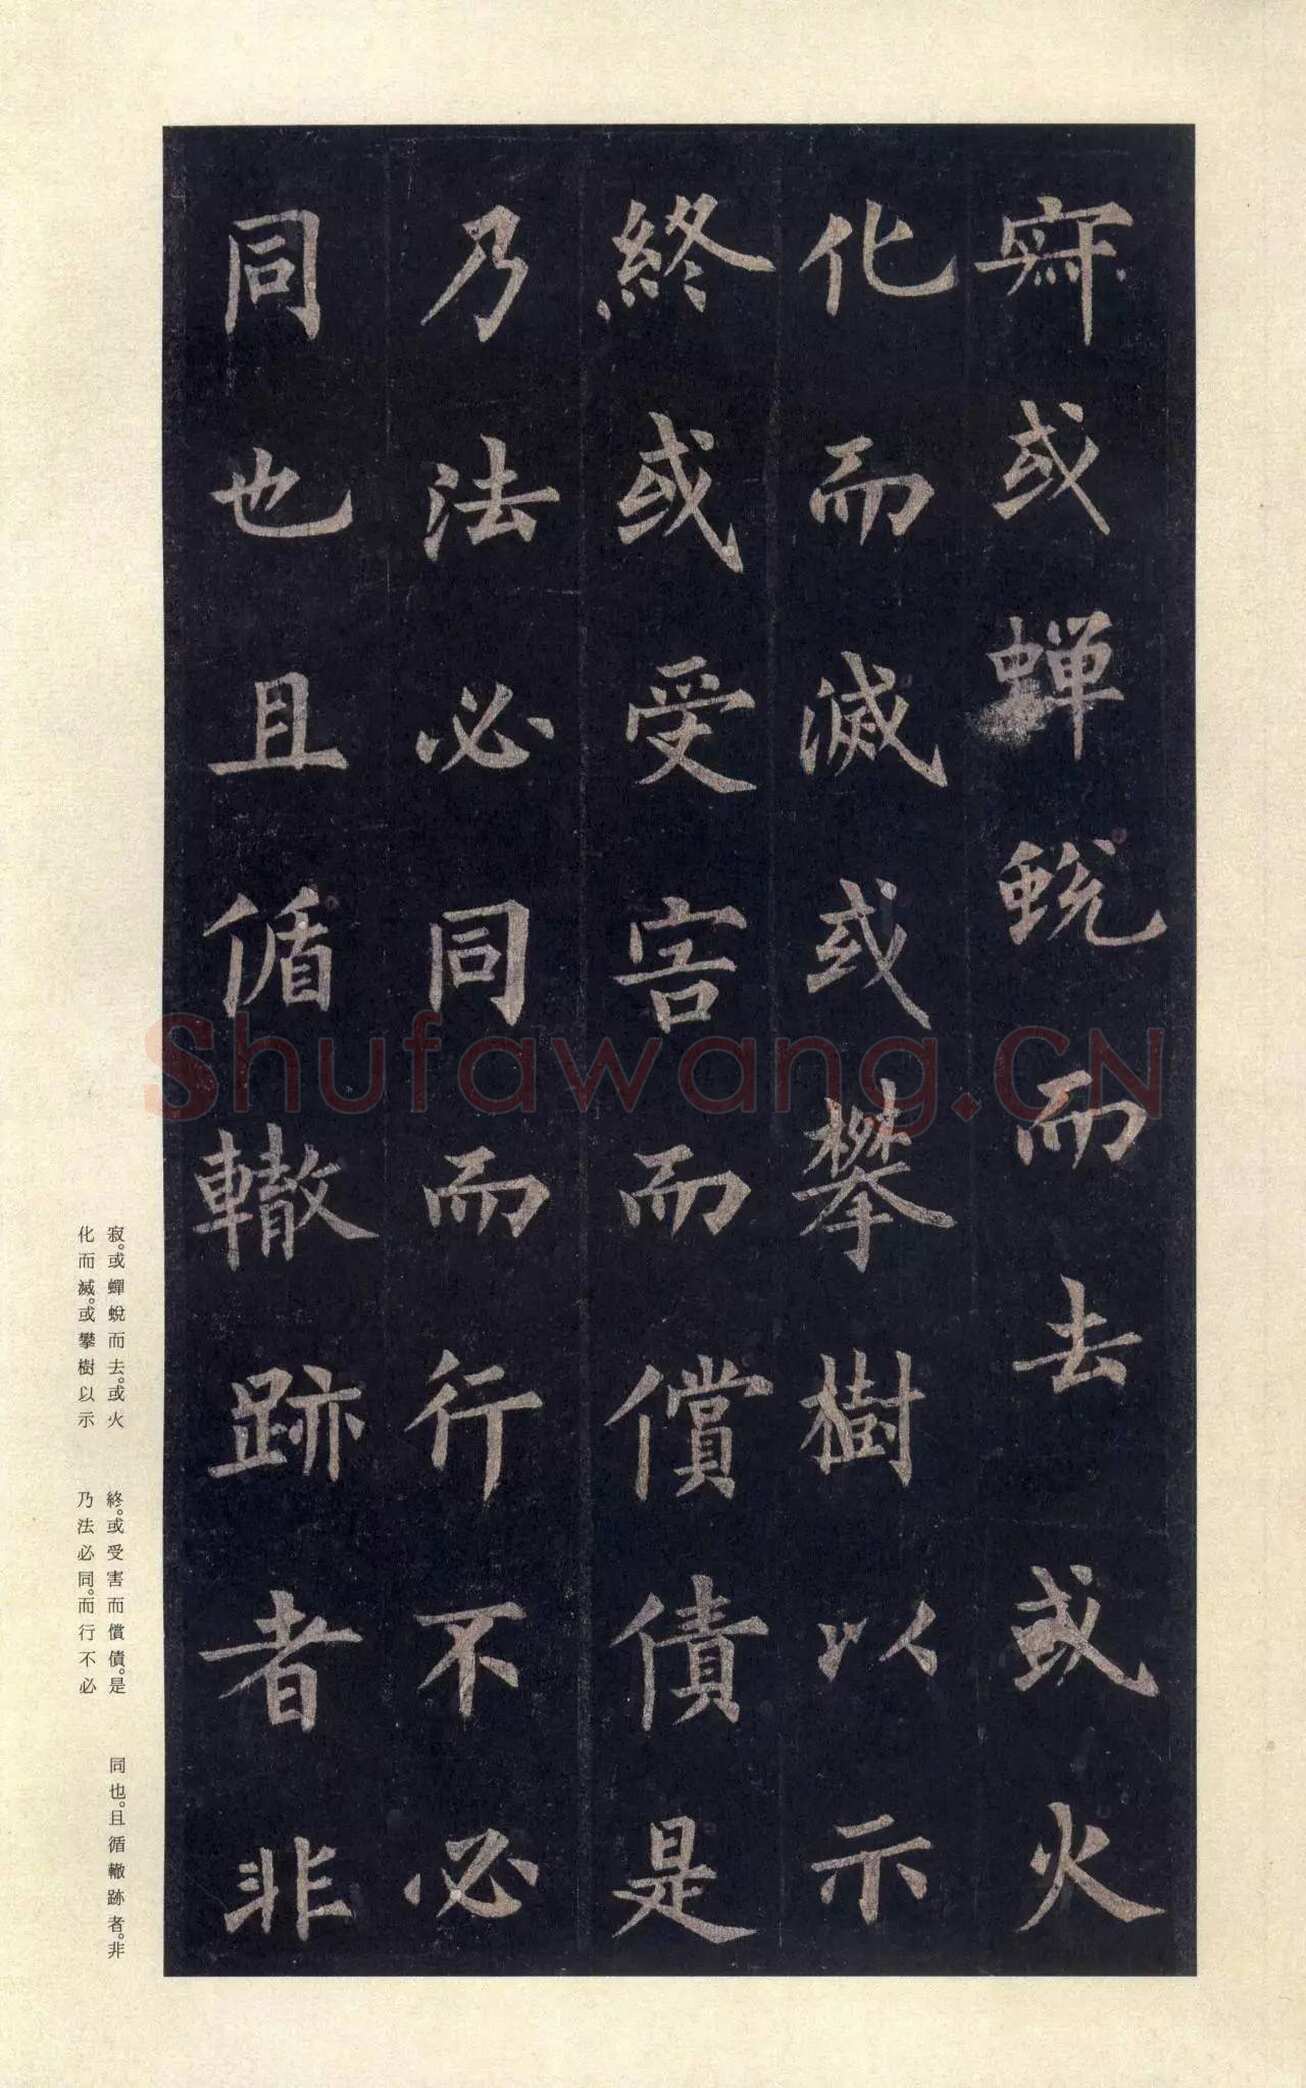 寂或蟬蛻而去或火
化而滅或攀樹以示
終或受害而償債是
乃法必同而行不必
同也且循轍跡者非
Shufawang.CN
寂。或蟬蛻而去。或火
化而滅。或攀樹以示
終。或受害而償債。是
乃法必同。而行不必
同也。且循轍跡者。非